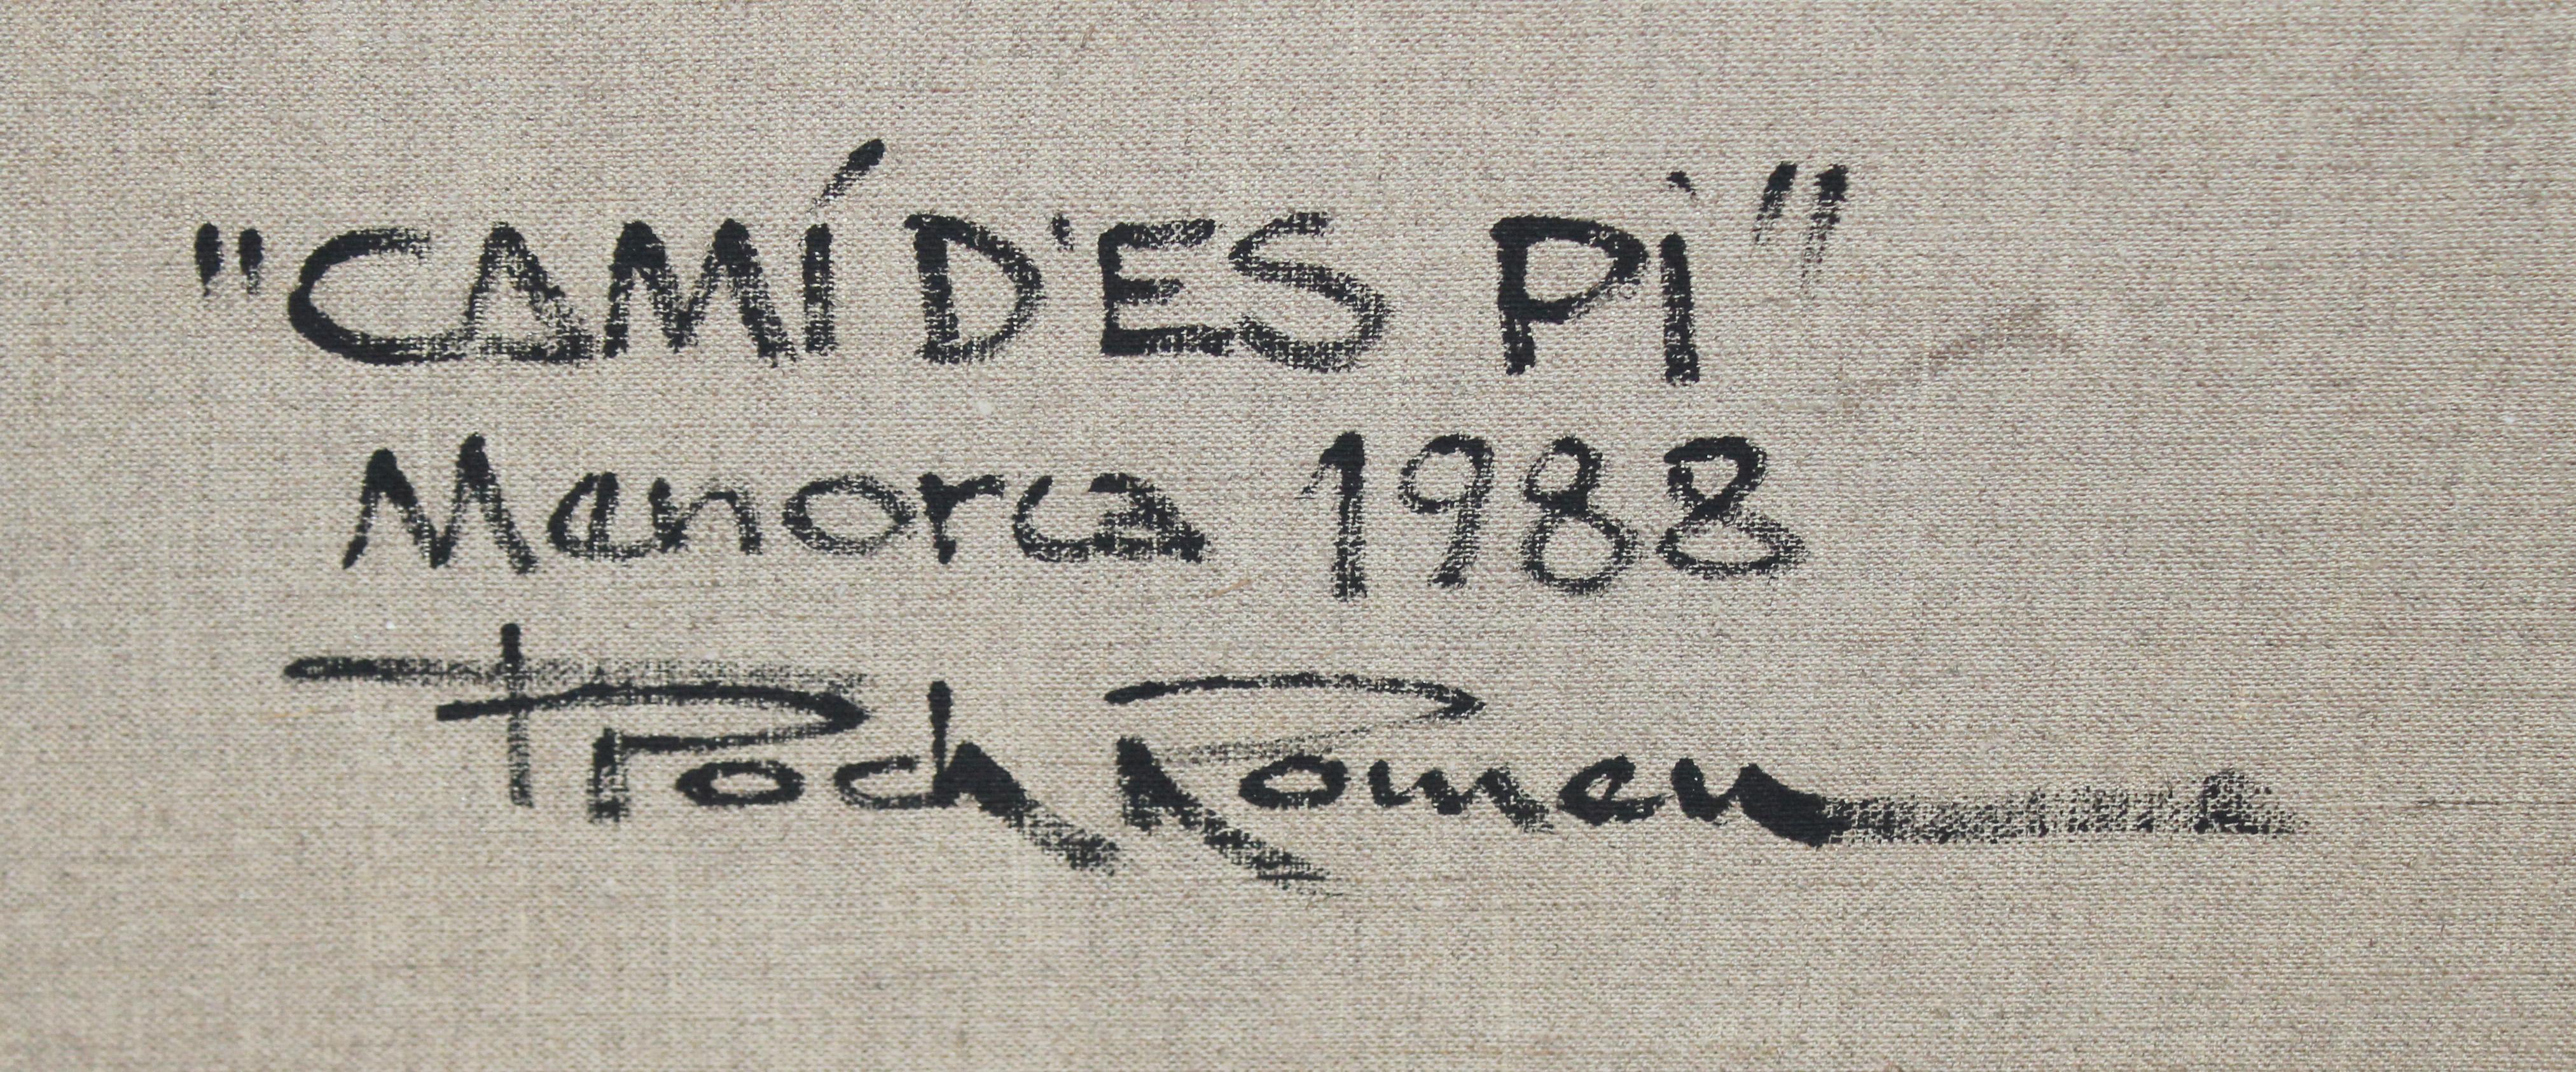 "CAMÍ D'ES PÌ"
Menorca 1988
Poch Romeu